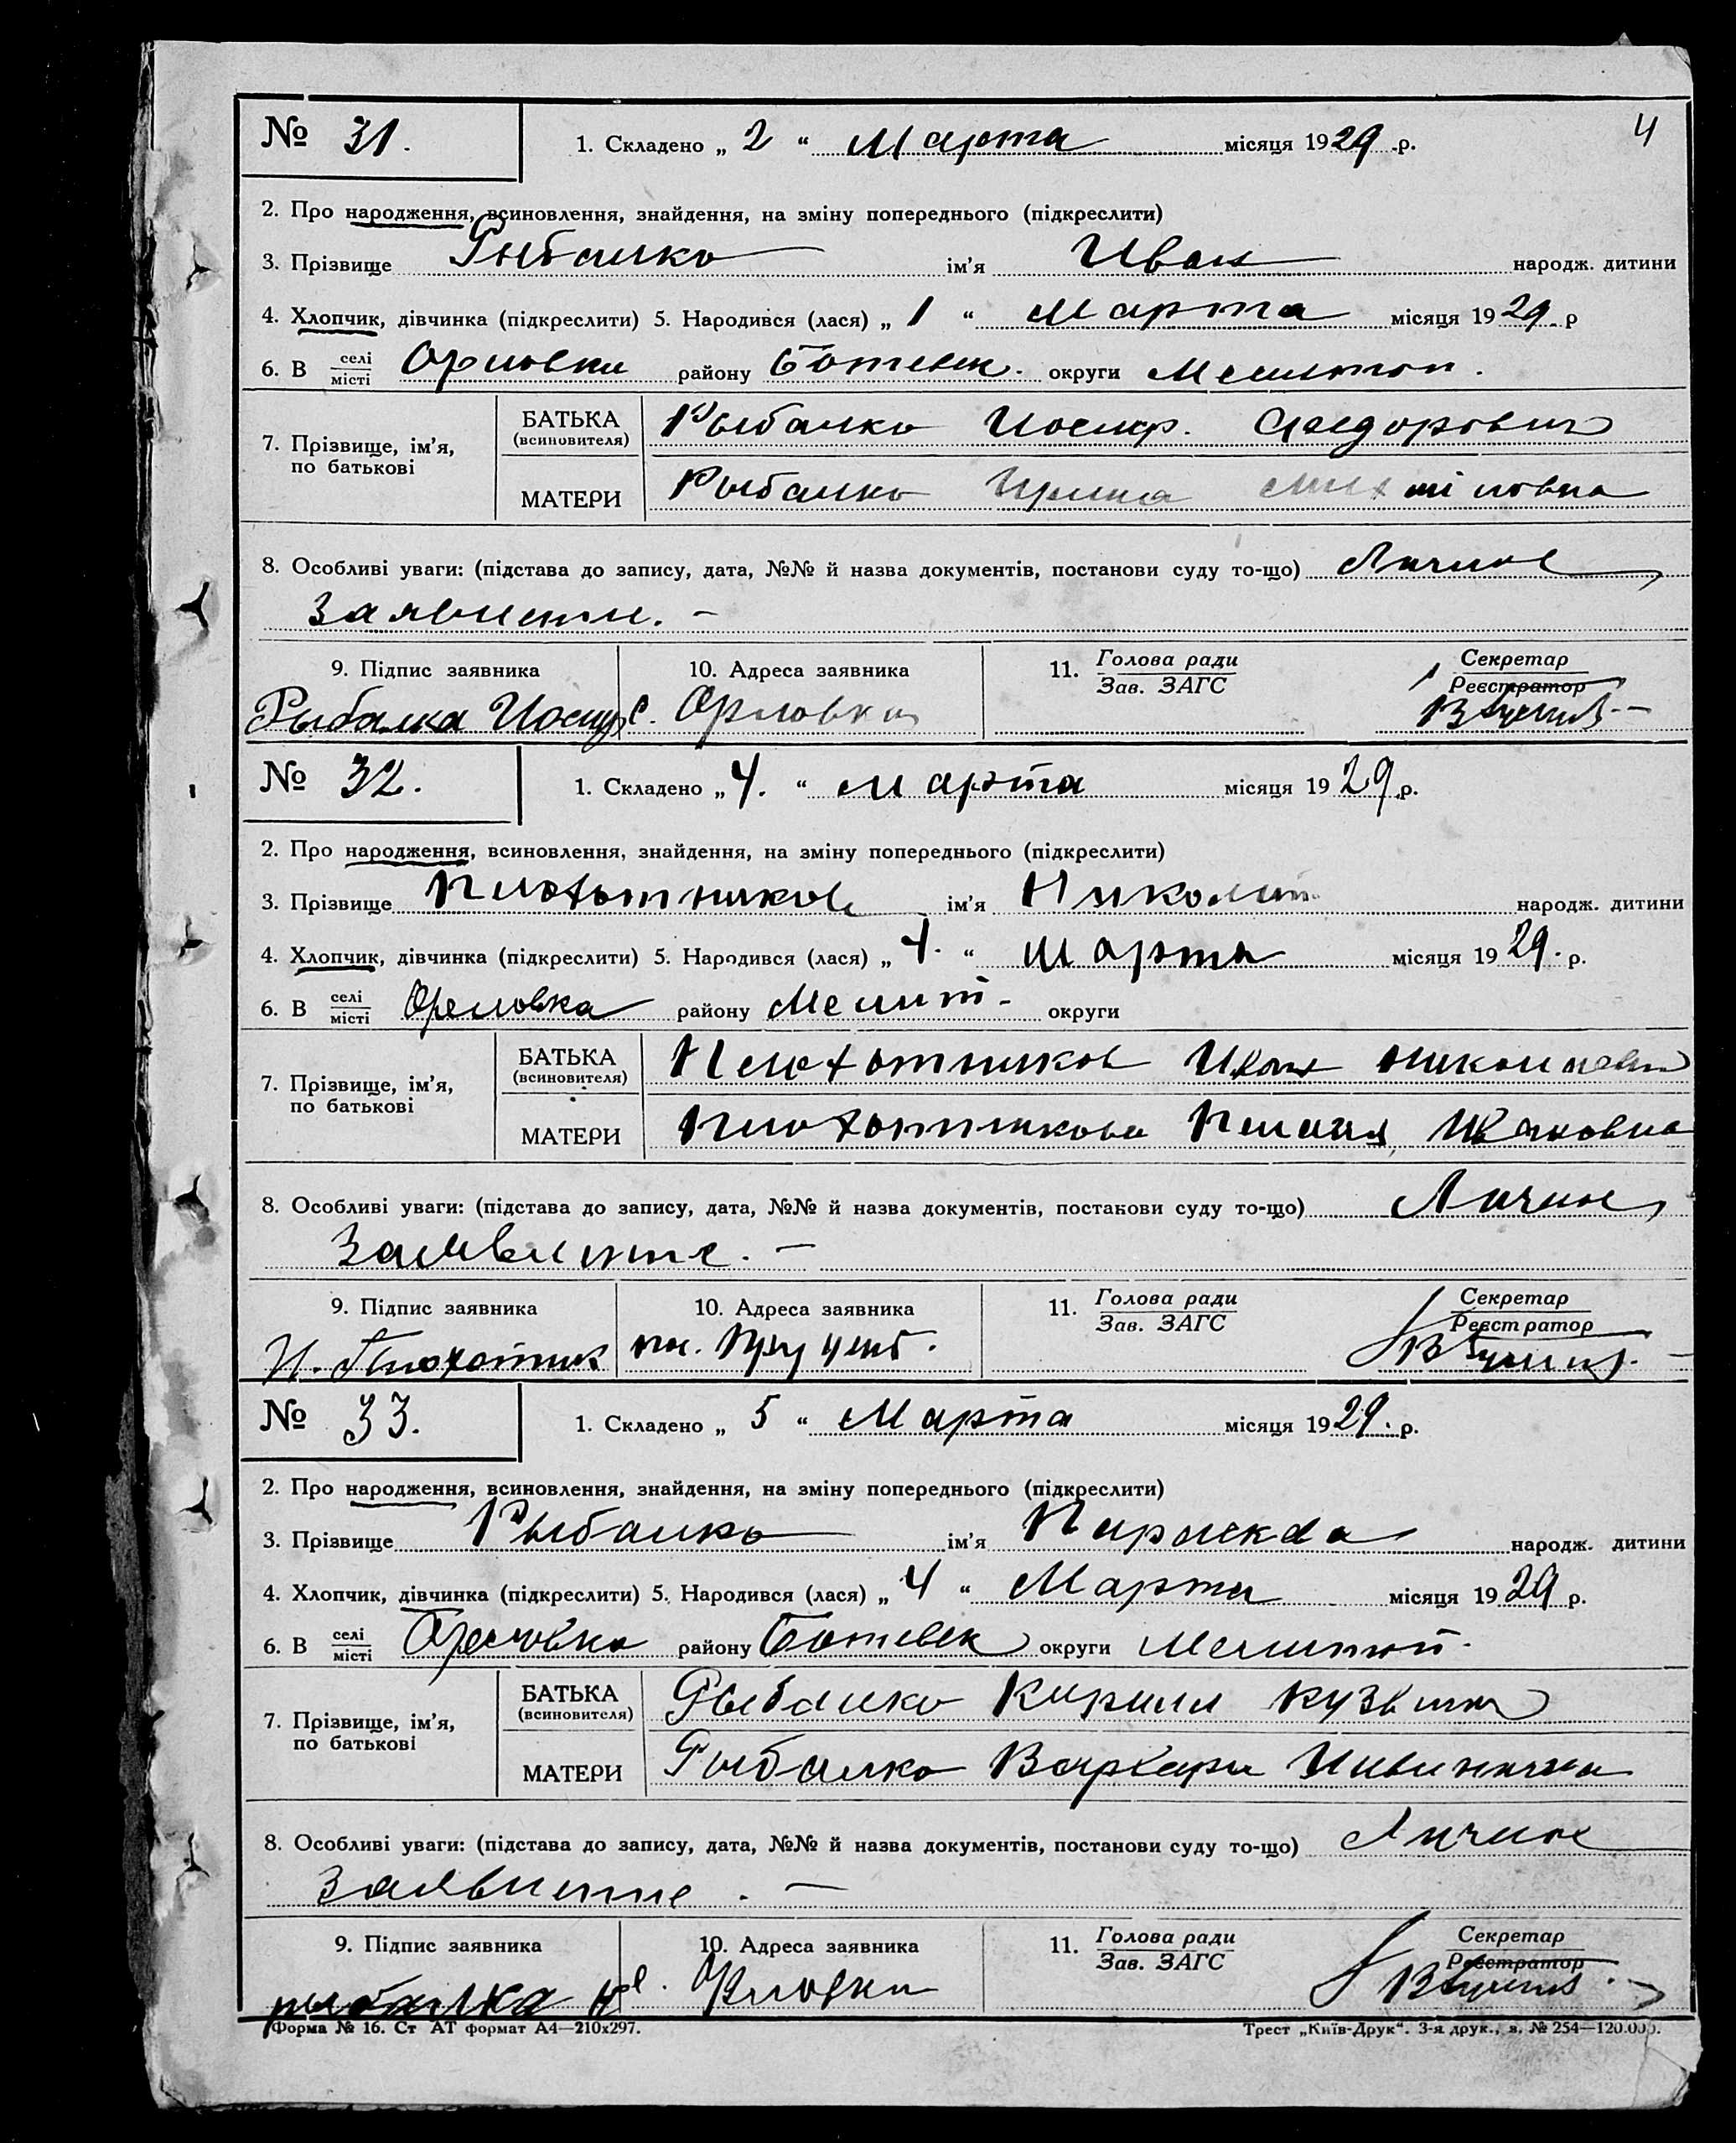 4
№ 31. 1. Складено „ 2 “ Марта місяця 1929 р.
2. Про народження, всиновлення, знайдення, на зміну попереднього (підкреслити)
3. Прізвище Рыбалко ім’я Иван народж. дитини
4. Хлопчик, дівчинка (підкреслити) 5. Народився (лася) „ 1 “ Марта місяця 1929. р
6. В селі місті Орловки району Ботевск. округи Мелитоп.
7. Прізвище, ім’я, по батькові
БАТЬКА (всиновителя) Рыбалко Иосиф. Федорович
МАТЕРИ Рыбалко Ирина
8. Особливі уваги: (підстава до запису, дата, №№ й назва документів, постанови суду то-що) Личное
Заявление. –
9. Підпис заявника 10. Адреса заявника 11. Голова ради Зав. ЗАГС Секретар Реєстратор
Рыбалка Иосиф с. Орловка
№ 32. 1. Складено „ 4. “ Марта місяця 1929 р.
2. Про народження, всиновлення, знайдення, на зміну попереднього (підкреслити)
3. Прізвище ім’я Николай народж. дитини
4. Хлопчик, дівчинка (підкреслити) 5. Народився (лася) „ “ Марта місяця 1929. р.
6. В селі місті Орловка району Мелит. округи
7. Прізвище, ім’я, по батькові
БАТЬКА (всиновителя) Иван
МАТЕРИ Ивановна
8. Особливі уваги: (підстава до запису, дата, №№ й назва документів, постанови суду то-що) Личное
Заявление. –
9. Підпис заявника 10. Адреса заявника 11. Голова ради Зав. ЗАГС Секретар Реєстратор
№ 33. 1. Складено „ 5 “ Марта місяця 1929. р.
2. Про народження, всиновлення, знайдення, на зміну попереднього (підкреслити)
3. Прізвище Рыбалко ім’я народж. дитини
4. Хлопчик, дівчинка (підкреслити) 5. Народився (лася) „ 4 “ Марта місяця 1929 р.
6. В селі місті Орловка району Ботевск округи Мелитоп.
7. Прізвище, ім’я, по батькові
БАТЬКА (всиновителя) Рыбалко Кирилл Кузьмич
МАТЕРИ Рыбалко Варвара
8. Особливі уваги: (підстава до запису, дата, №№ й назва документів, постанови суду то-що) Личное
Заявление. –
9. Підпис заявника 10. Адреса заявника 11. Голова ради Зав. ЗАГС Секретар Реєстратор
рыбалка
Форма № 16. Ст АТ формат А4—210х297. Трест „Київ-Друк“. 3-я друк., з. № 254—120.000.